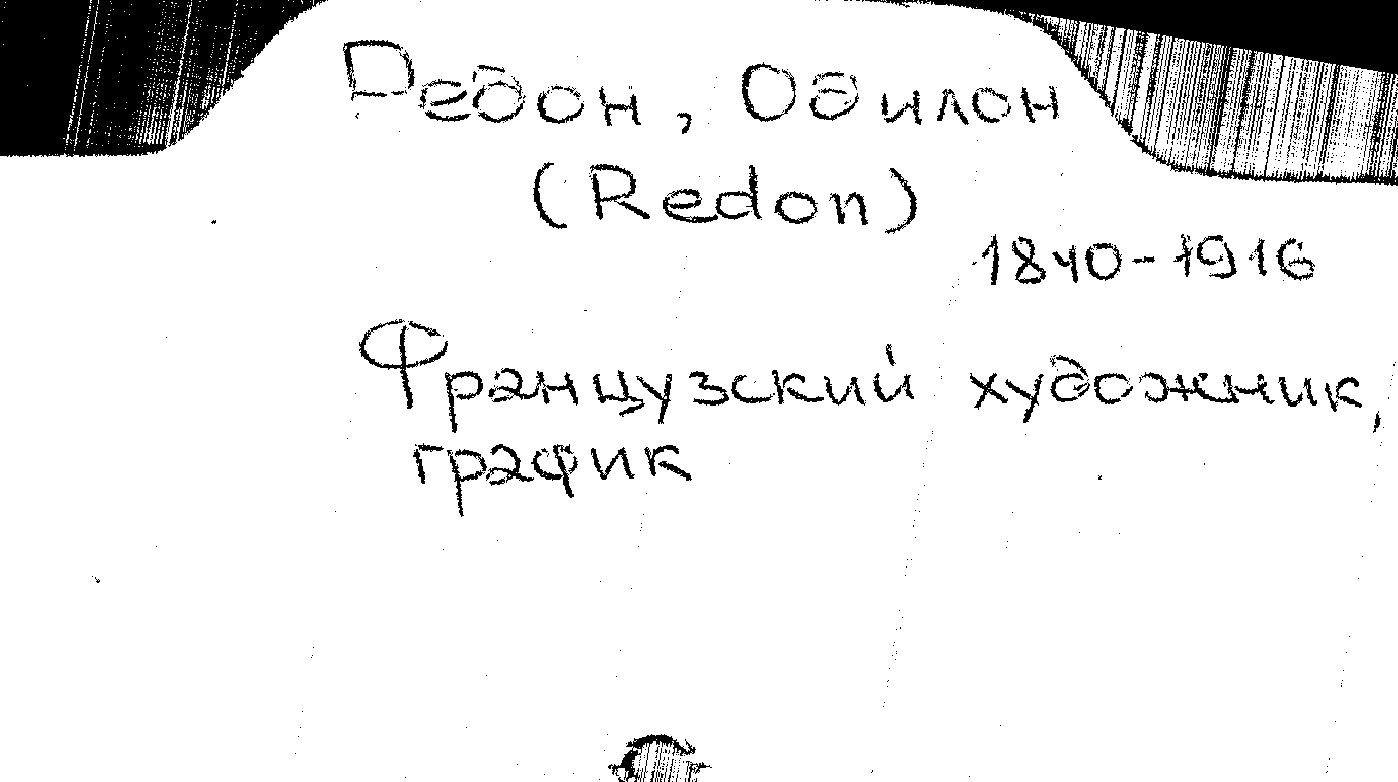 Редон, Одилон
(Redon)
1840-1916
Французский художник,
график